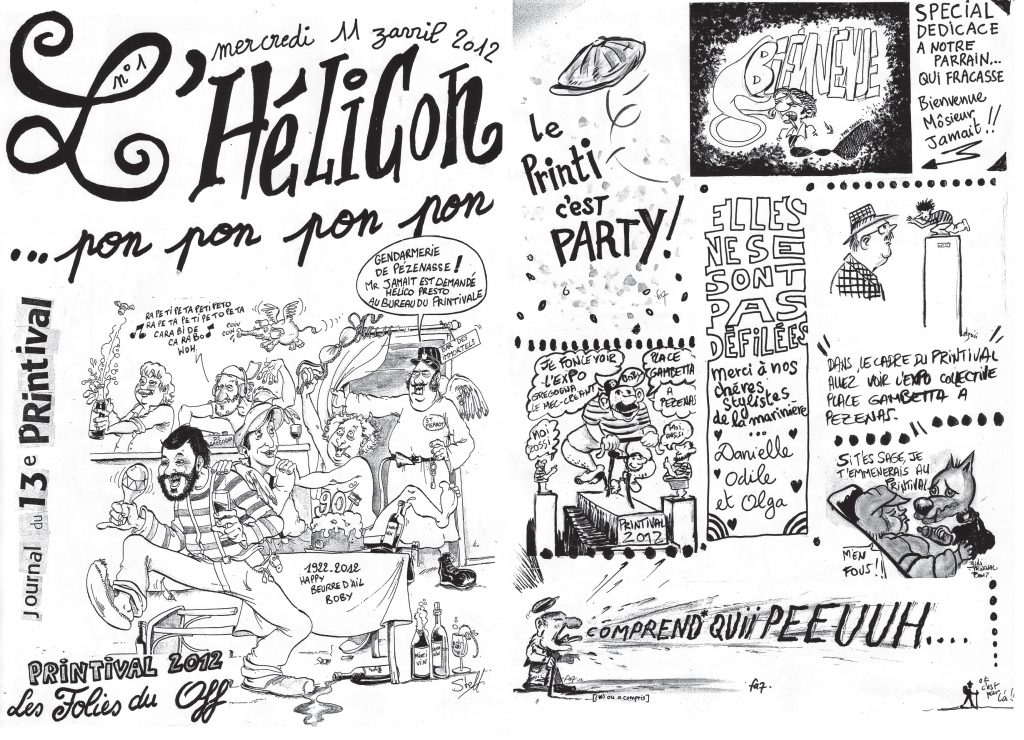 n°1
mercredi 11 zavril 2012
L'HéLiCon
...pon pon pon pon
Journal du 13e PRintival
RAPETIPETAPETIPETO
RAPETAPETIPETOPETA
CARABI DE
CARABO
WOH
COIN
COIN
GENDARMERIE
DE PÉZENASSE!
MR JAMAIT EST DEMANDÉ
HÉLICO PRESTO
AU BUREAU DU PRINTIVALE
90
1922-2012
HAPPY
BEURRE D'AÏL
BOBY
VIN
PRINTIVAL 2012
Les Folies du Off
le
Printi
c'EST
PARTY!
BIENVENUE
SPECIAL
DEDICACE
A NOTRE
PARRAIN...
QUI FRACASSE
Bienvenue
Môsieur
Jamait!!
ELLES
NE SE
SONT
PAS
DÉFILÉES
merci à nos
chères
stylistes
de la marinière
...
Danielle
Odile
et Olga
JE FONCE VOIR
L'EXPO
PLACE
GAMBETTA
A
PEZENAS
BOBY
MOI
AUSSI
MOI
AUSSI
PRINTIVAL
2012
DANS LE CADRE DU PRINTIVAL
ALLEZ VOIR L'EXPO COLLECTIVE
PLACE GAMBETTA A
PEZENAS.
SI T'ES SAGE, JE
T'EMMENERAIS AU
PRINTIVAL
M'EN
FOUS!
COMPREND* QUiii PEEUUUH....
[*é) ou a compris]
et
c'est
par
là!!